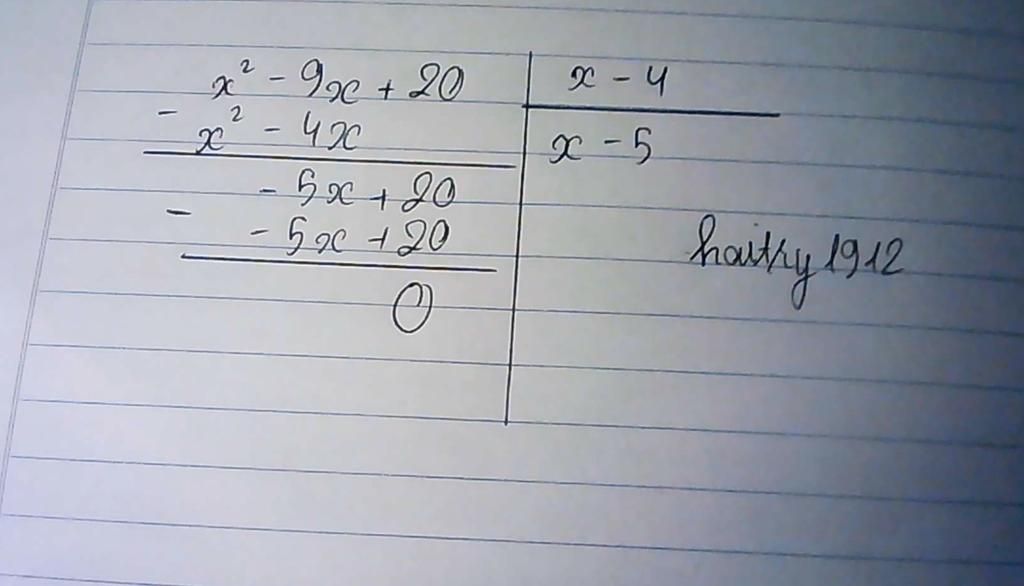 x² - 9x + 20 | x - 4
- x² - 4x | x - 5
- 5x + 20
- - 5x + 20
0
haithy1912